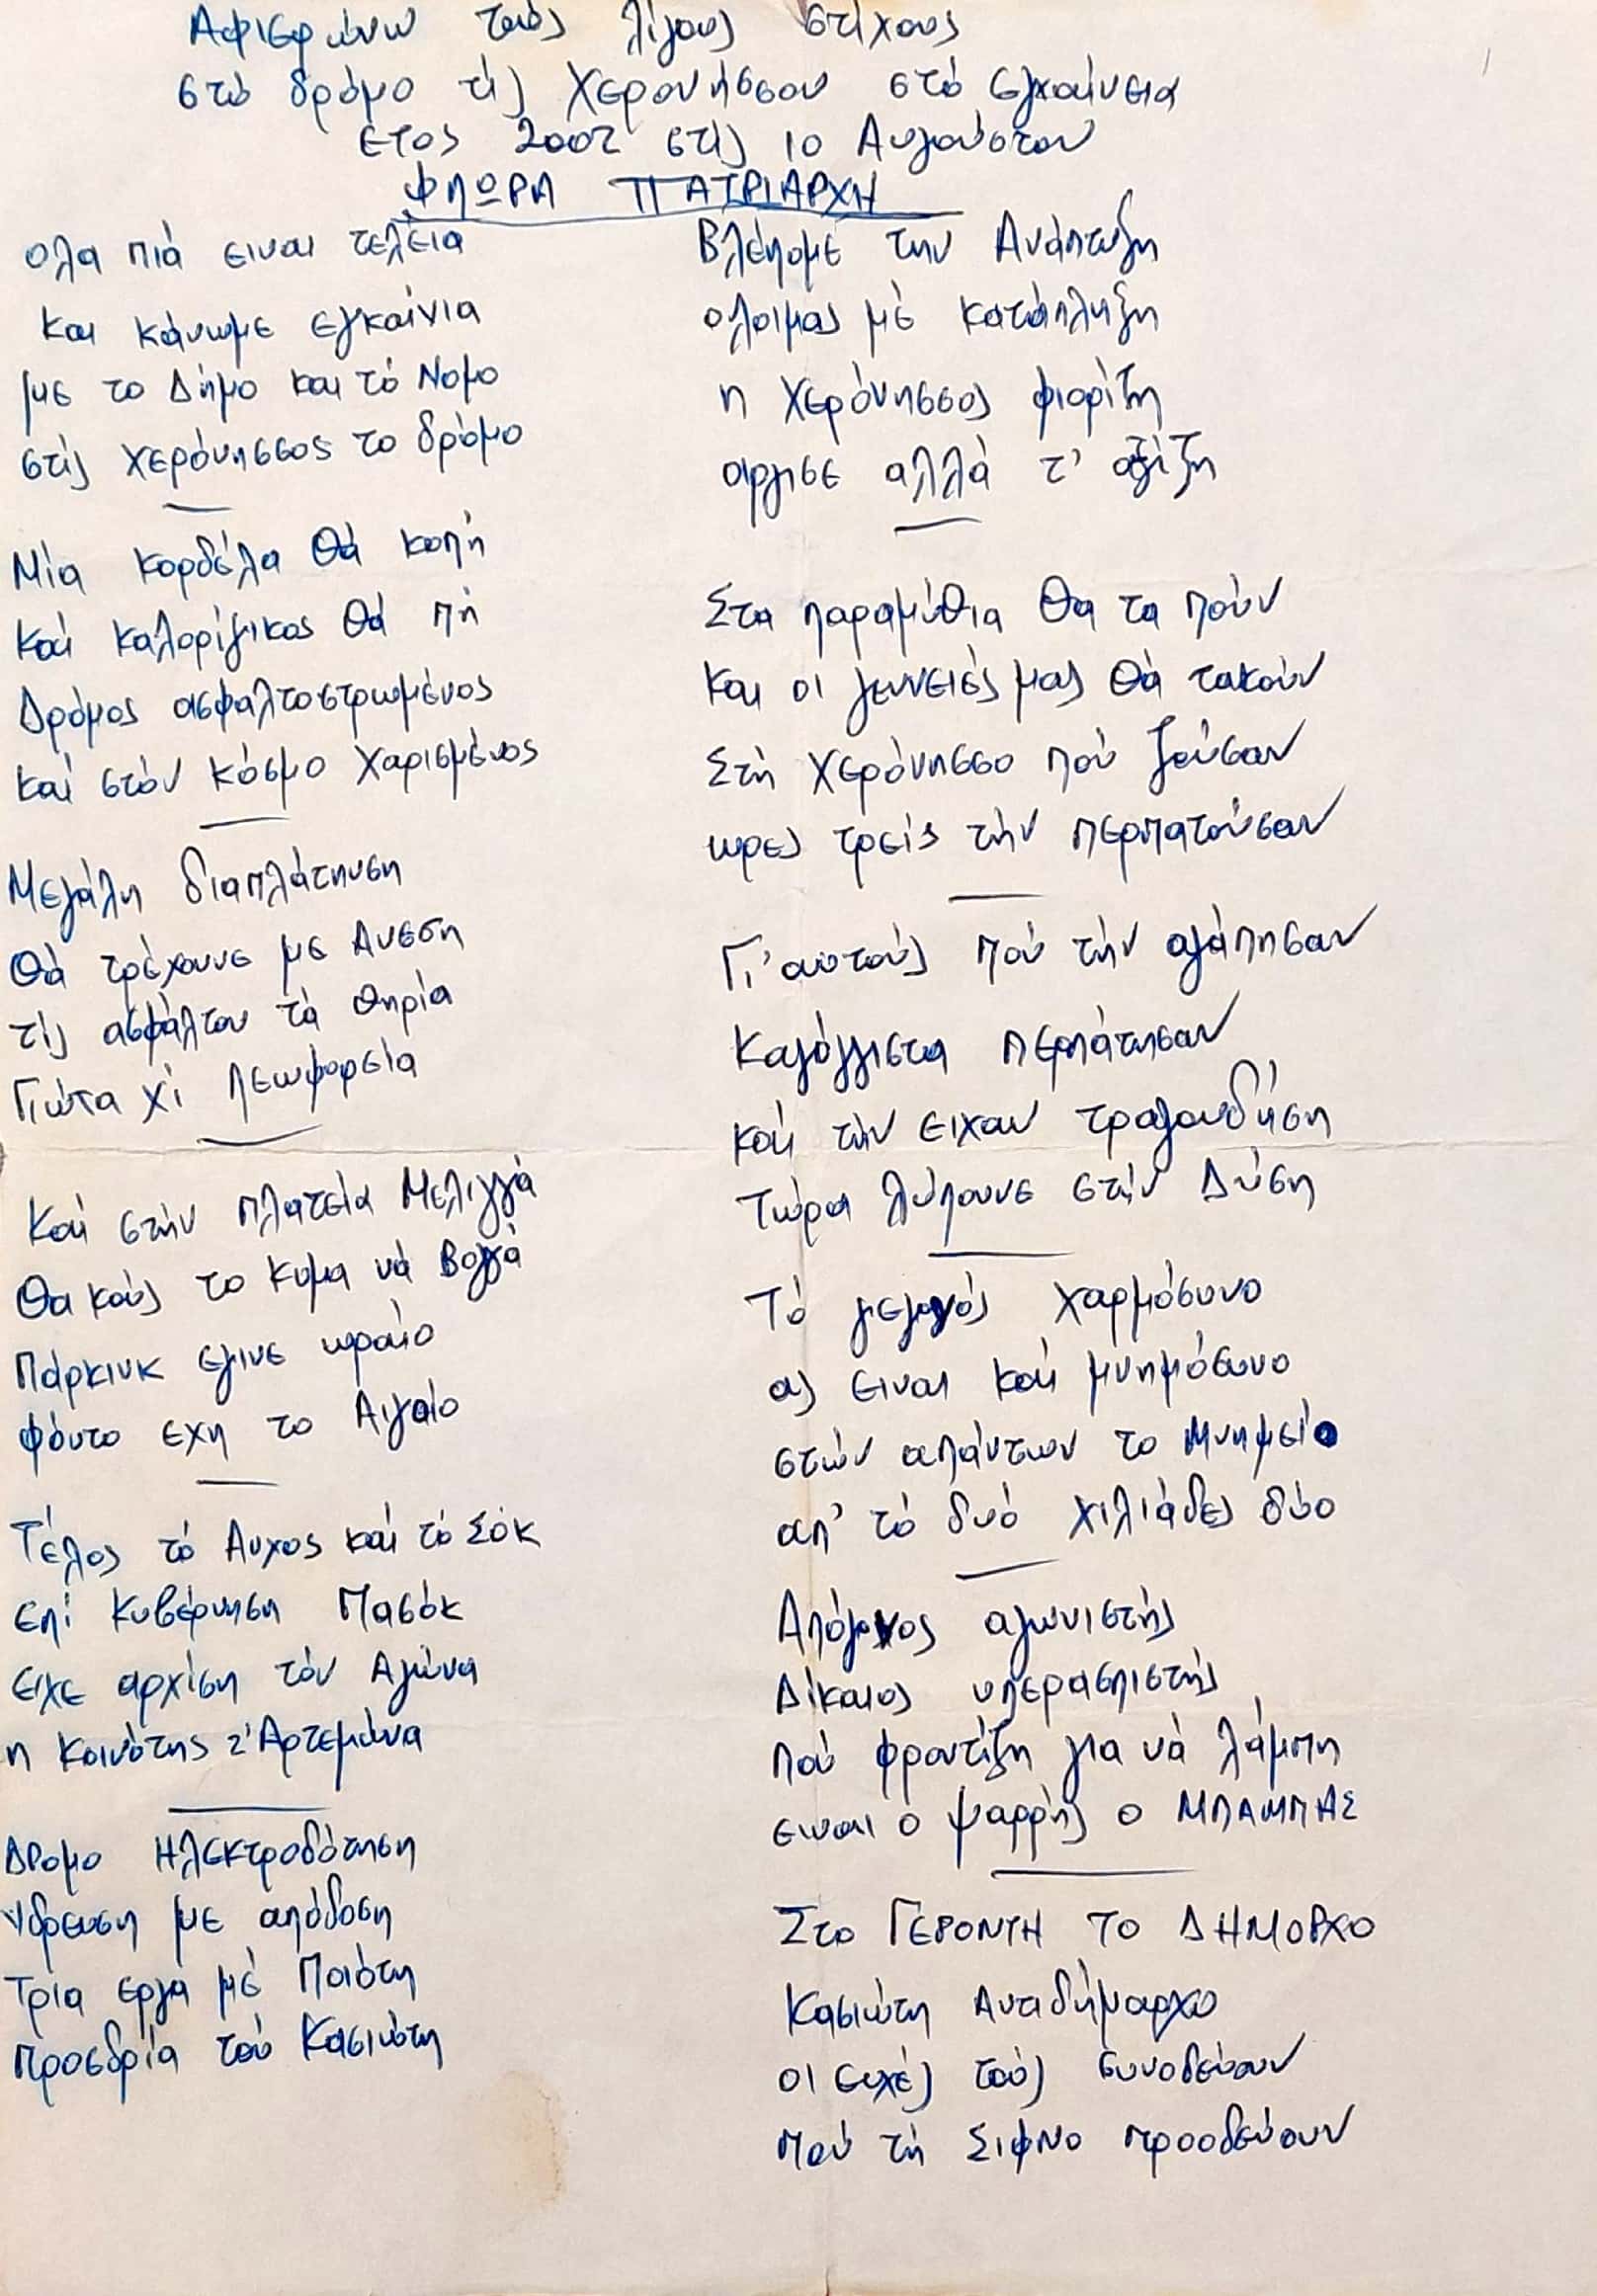 Αφιερώνω τούς λίγους στίχους
στό δρόμο τίς Χερονήσσου στό εγκαίνεια
ετος 2002 στίς 10 Αυγούστου
ΦΛΩΡΑ ΠΑΤΡΙΑΡΧΗ
ολα πιά ειναι τελεια
και κάνωμε εγκαίνια
με το Δήμο και τό Νομο
στίς χερόνησσος το δρόμο
Μία κορδέλα θά κοπή
καί καλορίζικος θά πή
Δρόμος ασφαλτοστρωμένος
καί στόν κόσμο χαρισμένος
Μεγάλη διαπλάτηνση
θά τρέχουνε με Ανεση
τίς ασφάλτου τά θηρία
Γιώτα χί λεωφορεία
καί στήν πλατεία Μελιγγά
θα κούς το κυμα νά βογγά
Πάρκινκ εγινε ωραίο
φόντο εχη το Αιγαίο
Τέλος τό Ανχος καί τό Σόκ
επί κυβέρνηση Πασόκ
ειχε αρχίση τόν Αγώνα
η κοινότης τ' Αρτεμώνα
Δρομο Ηλεκτροδότηση
Υδρευση με απόδοση
Τρια εργα μέ Ποιότη
προεδρία τού Κασιώτη
Βλέπομε την Ανάπτυξη
ολοιμας μέ κατάπληξη
η Χερόνησσος φιορίζη
αργισε αλλά τ' αξίζη
Στα παραμύθια θα τα πούν
και οι γεννειές μας θά τακούν
Στή Χερόνησσο πού ζούσαν
ωρες τρείς τήν περπατούσαν
Γι' αυτούς πού τήν αγάπησαν
καλόγγιστα περπάτησαν
καί τήν ειχαν τραγουδήση
τώρα λύπουνε στήν Δύση
Τό γεγονός χαρμόσυνο
ας ειναι καί μνημόσυνο
στών απάντων το Μνημείο
απ' τό δυό χιλιάδες δύο
Απόγονος αγωνιστής
Δίκαιος υπερασπιστής
πού φροντίζη για νά λάμπη
ειναι ο ψαρρής ο ΜΠΑΜΠΗΣ
Στο ΓΕΡΟΝΤΗ ΤΟ ΔΗΜΑΡΧΟ
Κασιώτη Αντιδήμαρχο
οι ευχές τούς συνοδεύουν
πού τή Σιφνο προοδεύουν